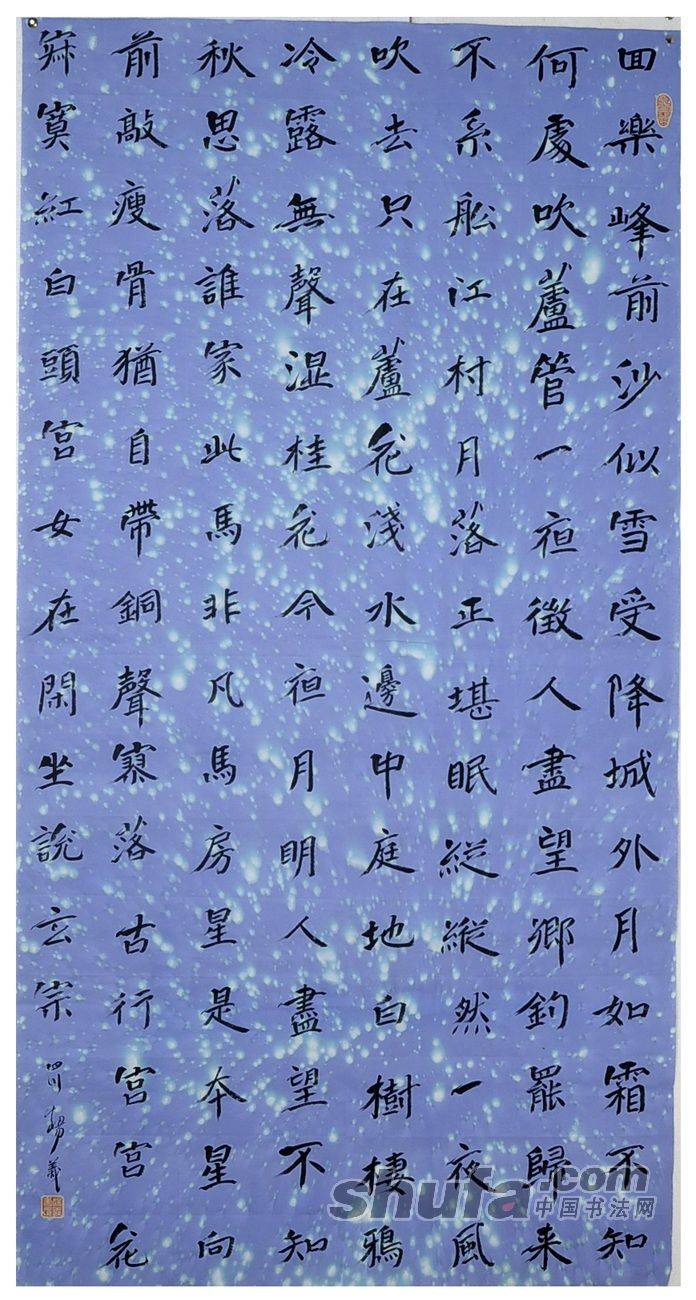 回樂峰前沙似雪受降城外月如霜不知
何處吹蘆管一亱徵人盡望鄉釣罷歸来
不系舩江村月落正堪眠縱縱然一夜風
吹去只在蘆花淺水邊中庭地白樹棲鴉
冷露無聲湿桂花今亱月明人盡望不知
秋思落誰家此馬非凡馬房星是本星向
前敲瘦骨猶自帶銅聲寥落古行宮宮花
寂寞紅白頭宮女在閑坐說玄宗
shufa.com
中国书法网